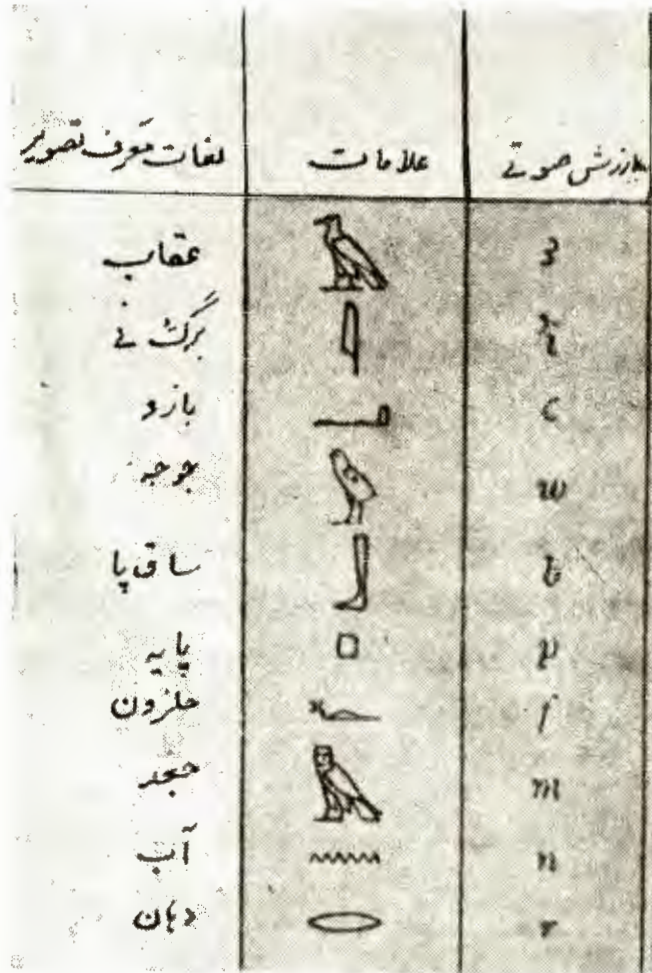 لغات معرف تصویر علامات بارزش صوتی
عقاب 3
برگ نی i
بازو c
جوجه w
ساق پا b
پایه p
حلزون f
جغد m
آب n
دهان r